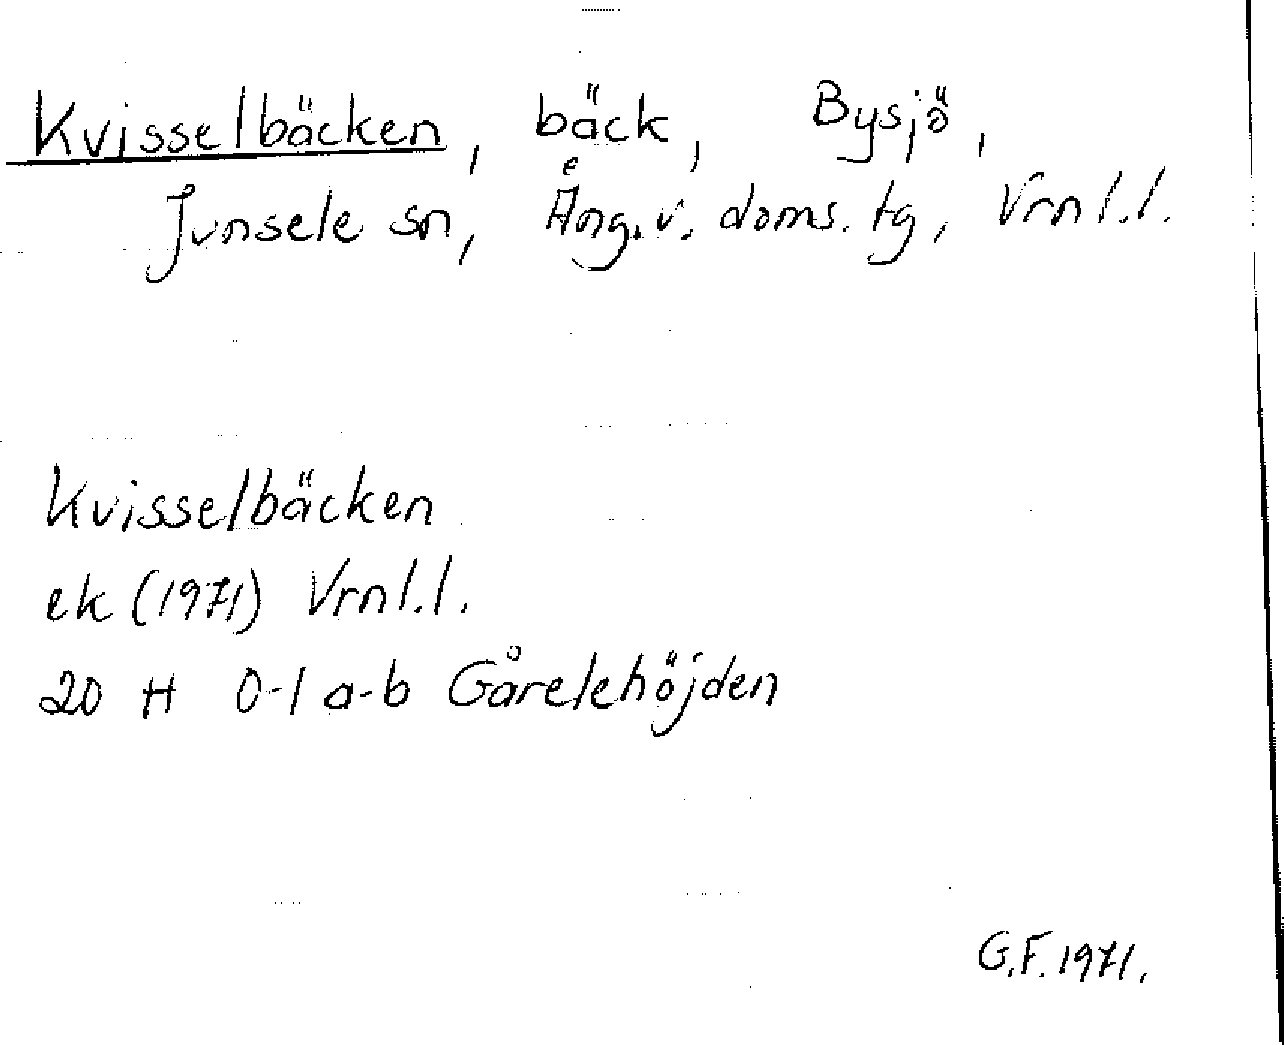 Kvisselbäcken, bäck, Bysjö,
Junsele sn, Ång.v. doms. tg, Vrnl.l.
Kvisselbäcken
ek (1971) Vrnl.l.
20 H 0-1 a-b Gårelehöjden
G.F. 1971.